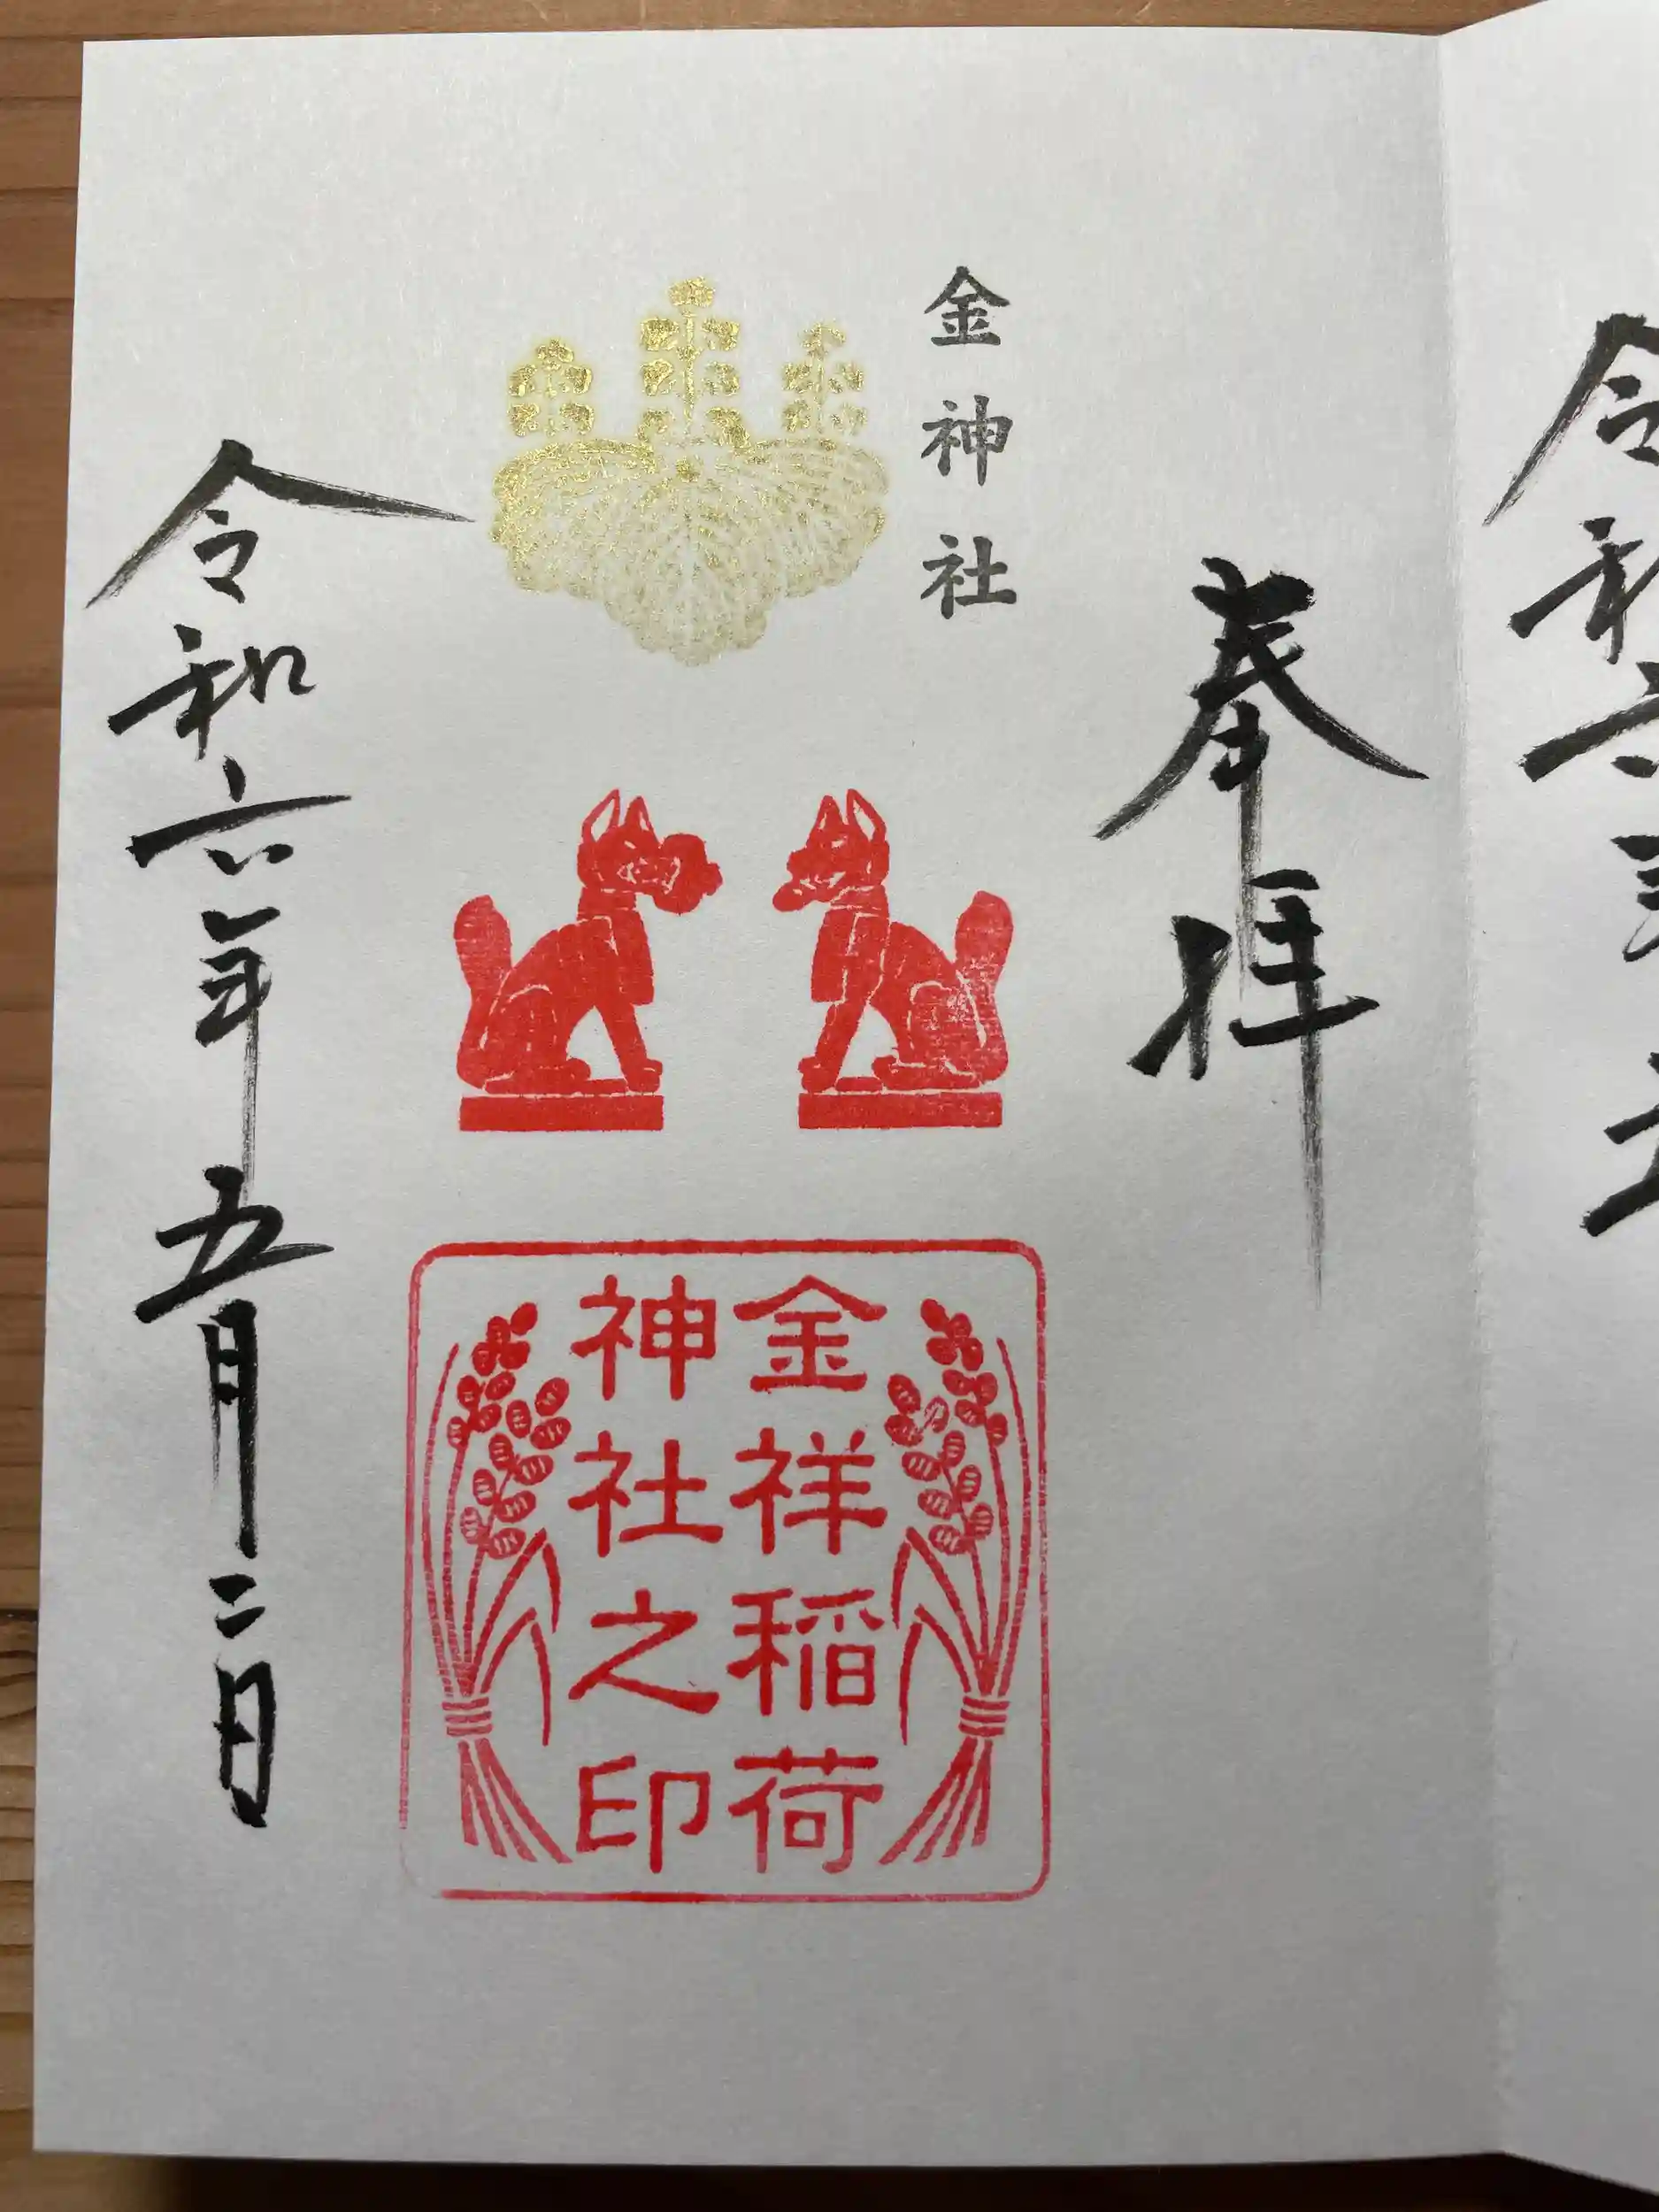 奉拝
金神社
金祥稲荷
神社之印
令和六年五月二日
令和六